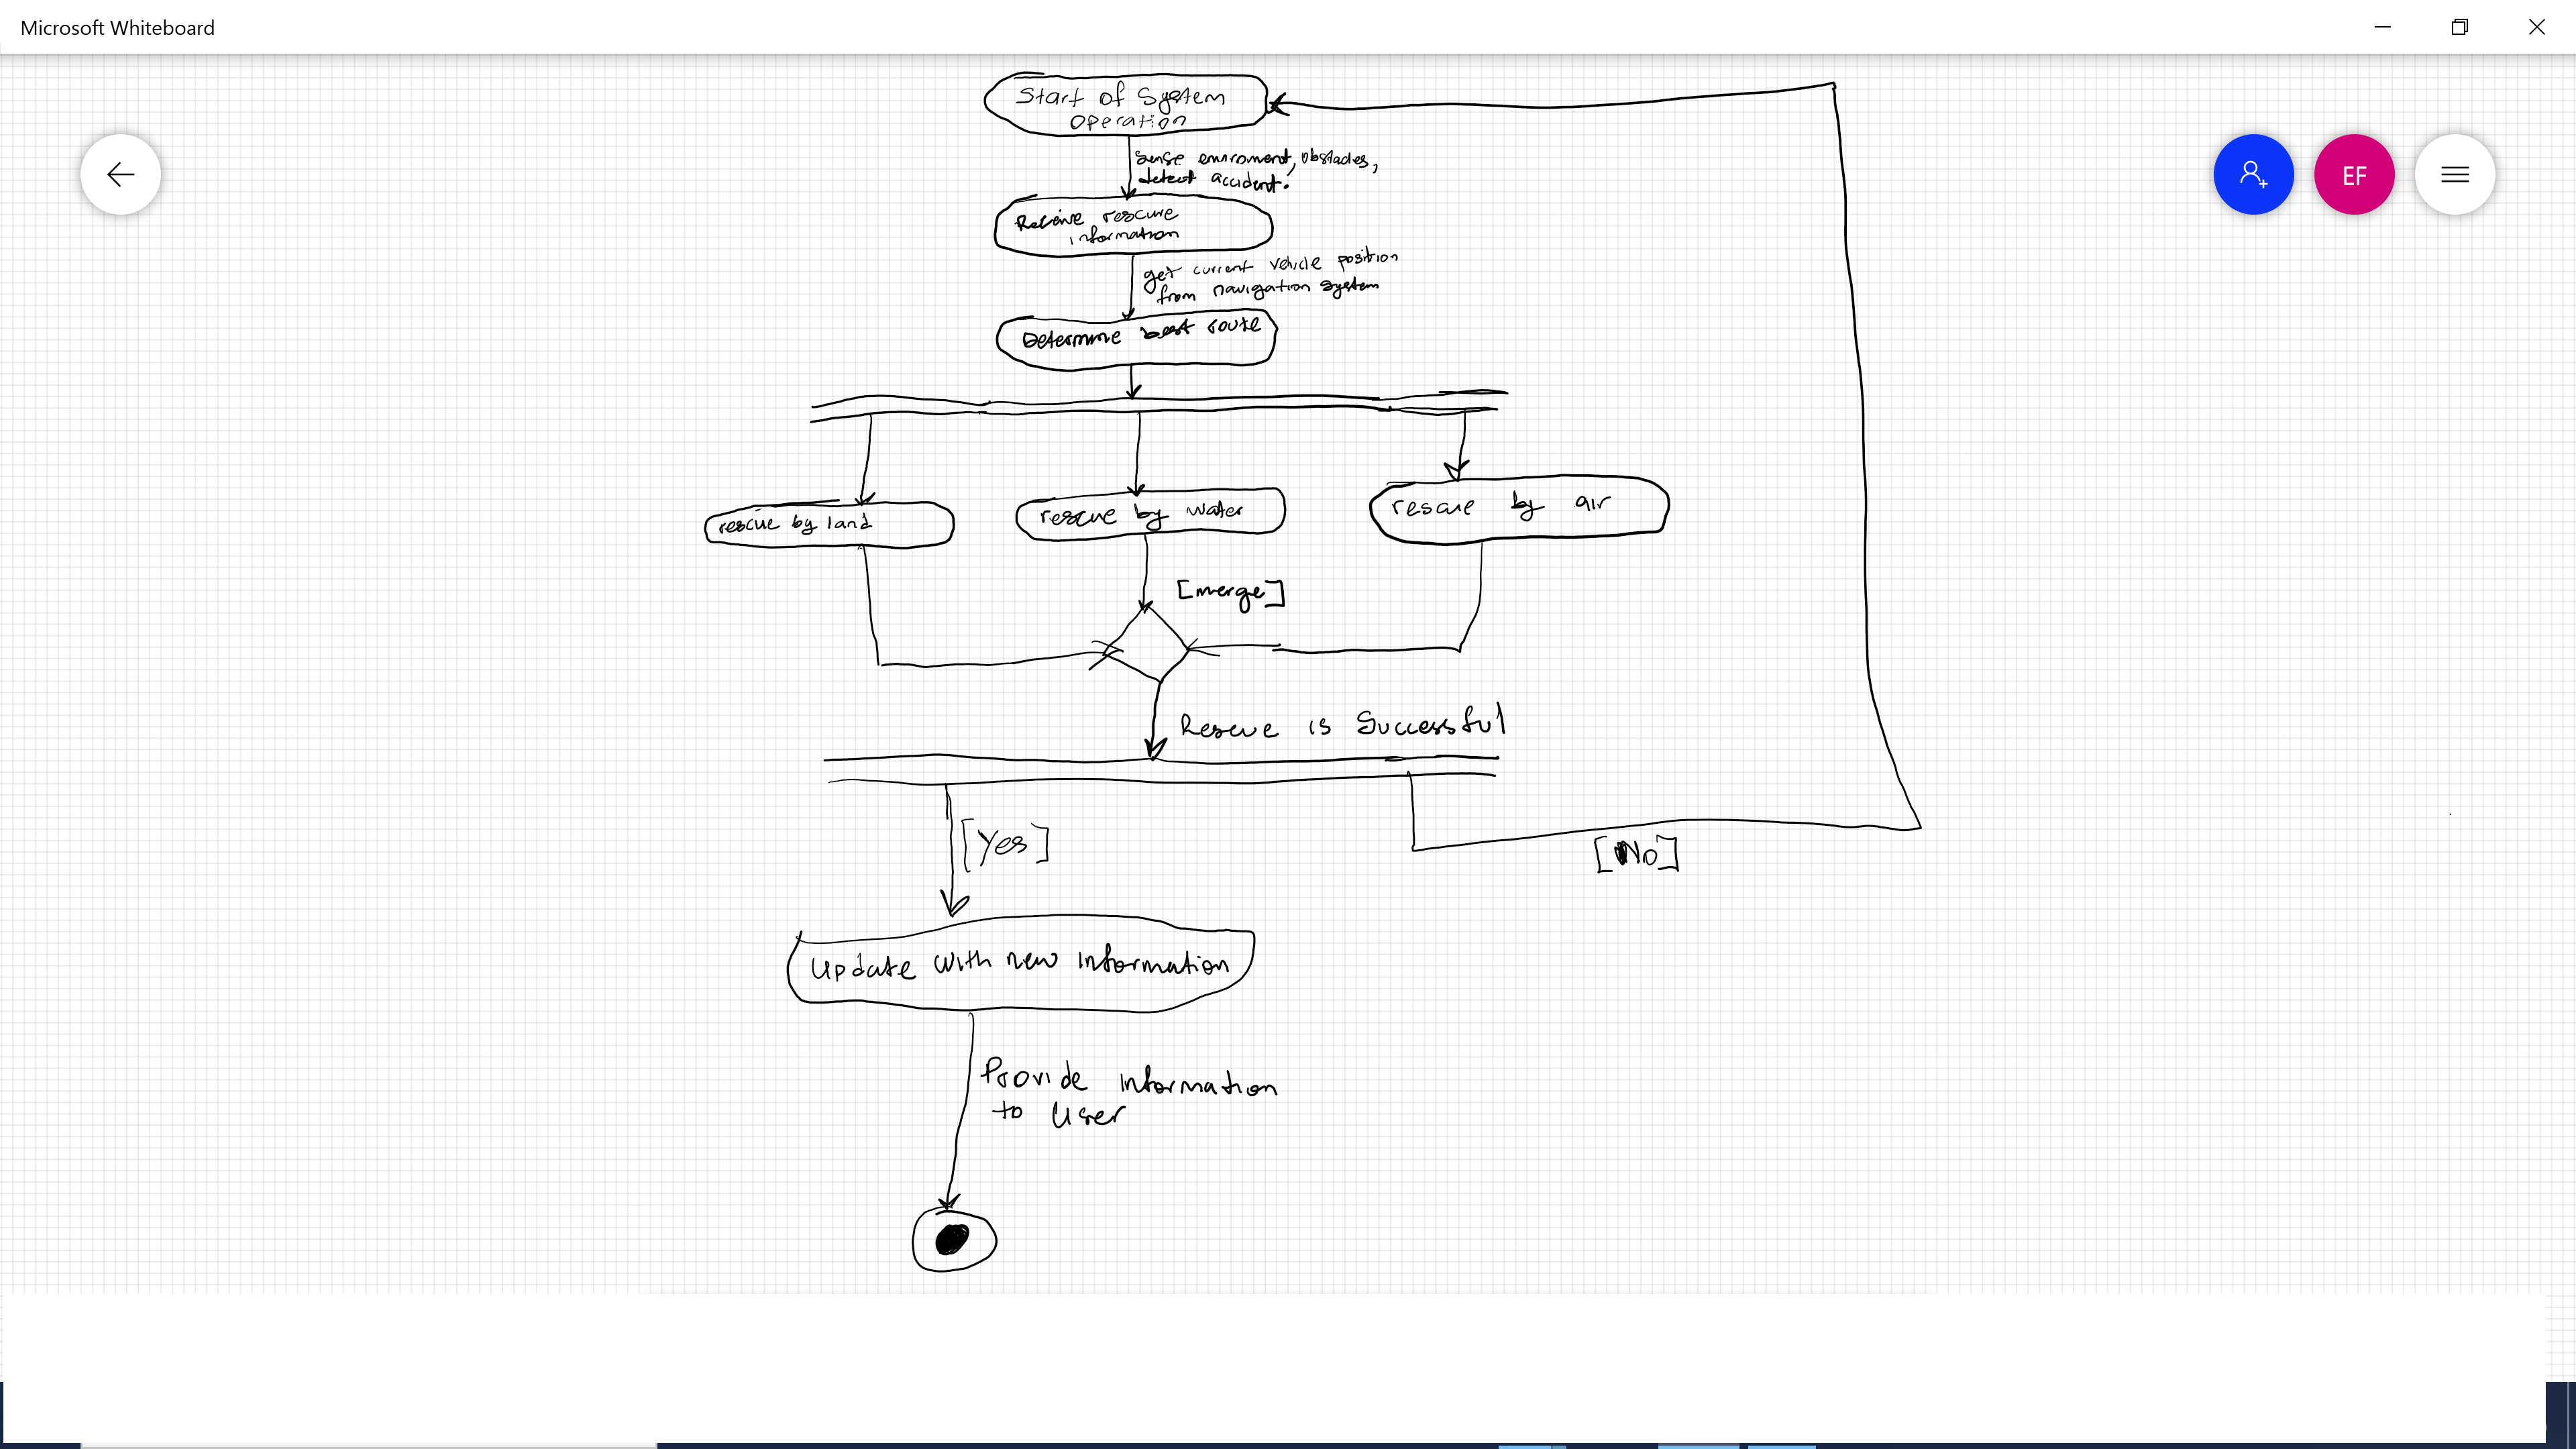 Microsoft Whiteboard
Start of System
Operation
Sense enviroment, obstacles,
detect accident.
EF
Receive rescure
information
get current vehicle position
from navigation system
Determine best route
rescue by land
rescue by water
rescue by air
[merge]
Rescue is Successful
[Yes]
[No]
Update with new information
Provide information
to User